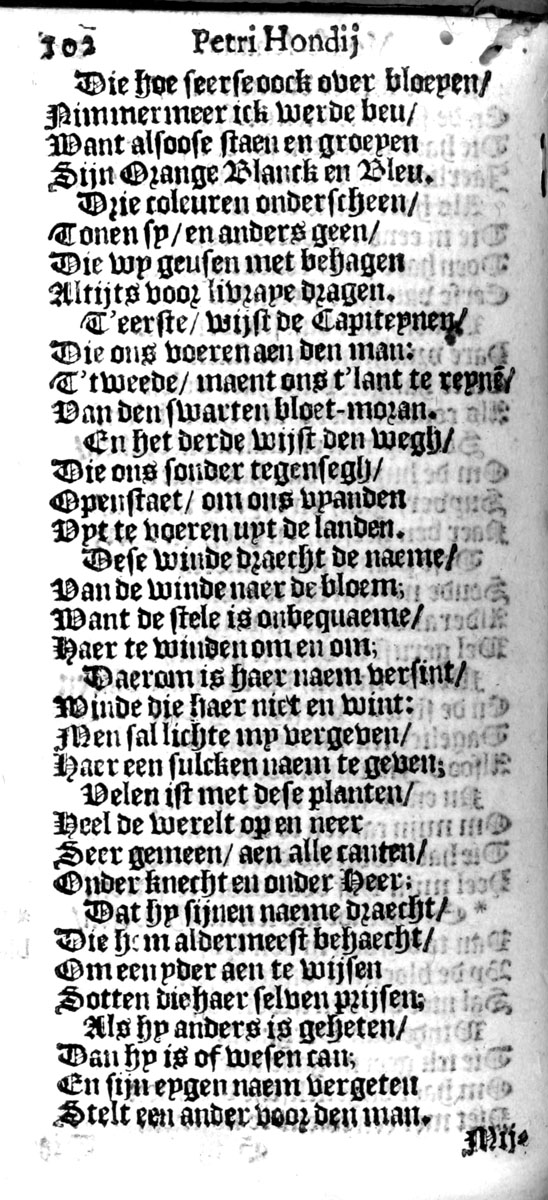 302 Petri Hondij
Die hoe seerse oock over bloeyen/
Nimmermeer ick werde beu/
Want alsoose staen en groeyen
Sijn Orange Blanck en Bleu.
Drie coleuren onderscheen/
Tonen sy/ en anders geen/
Die wy geusen met behagen
Altijts voor livraye dragen.
T'eerste/ wijst de Capiteynen/
Die ons voeren aen den man:
T'tweede/ maent ons t'lant te reynẽ/
Van den swarten bloet-moran.
En het derde wijst den wegh/
Die ons sonder tegensegh/
Openstaet/ om ons vyanden
Uyt te voeren uyt de landen.
Dese winde draecht de naeme/
Van de winde naer de bloem;
Want de stele is onbequaeme/
Haer te winden om en om;
Daerom is haer naem versint/
Winde die haer niet en wint:
Men sal lichte my vergeven/
Haer een sulcken naem te geven;
Velen ist met dese planten/
Heel de werelt op en neer
Seer gemeen/ aen alle canten/
Onder knecht en onder Heer;
Dat hy sijnen naeme draecht/
Die hem aldermeest behaecht/
Om een yder aen te wijsen
Sotten die haer selven prijsen;
Als hy anders is geheten/
Dan hy is of wesen can;
En sijn eygen naem vergeten
Stelt een ander voor den man.
Mij-